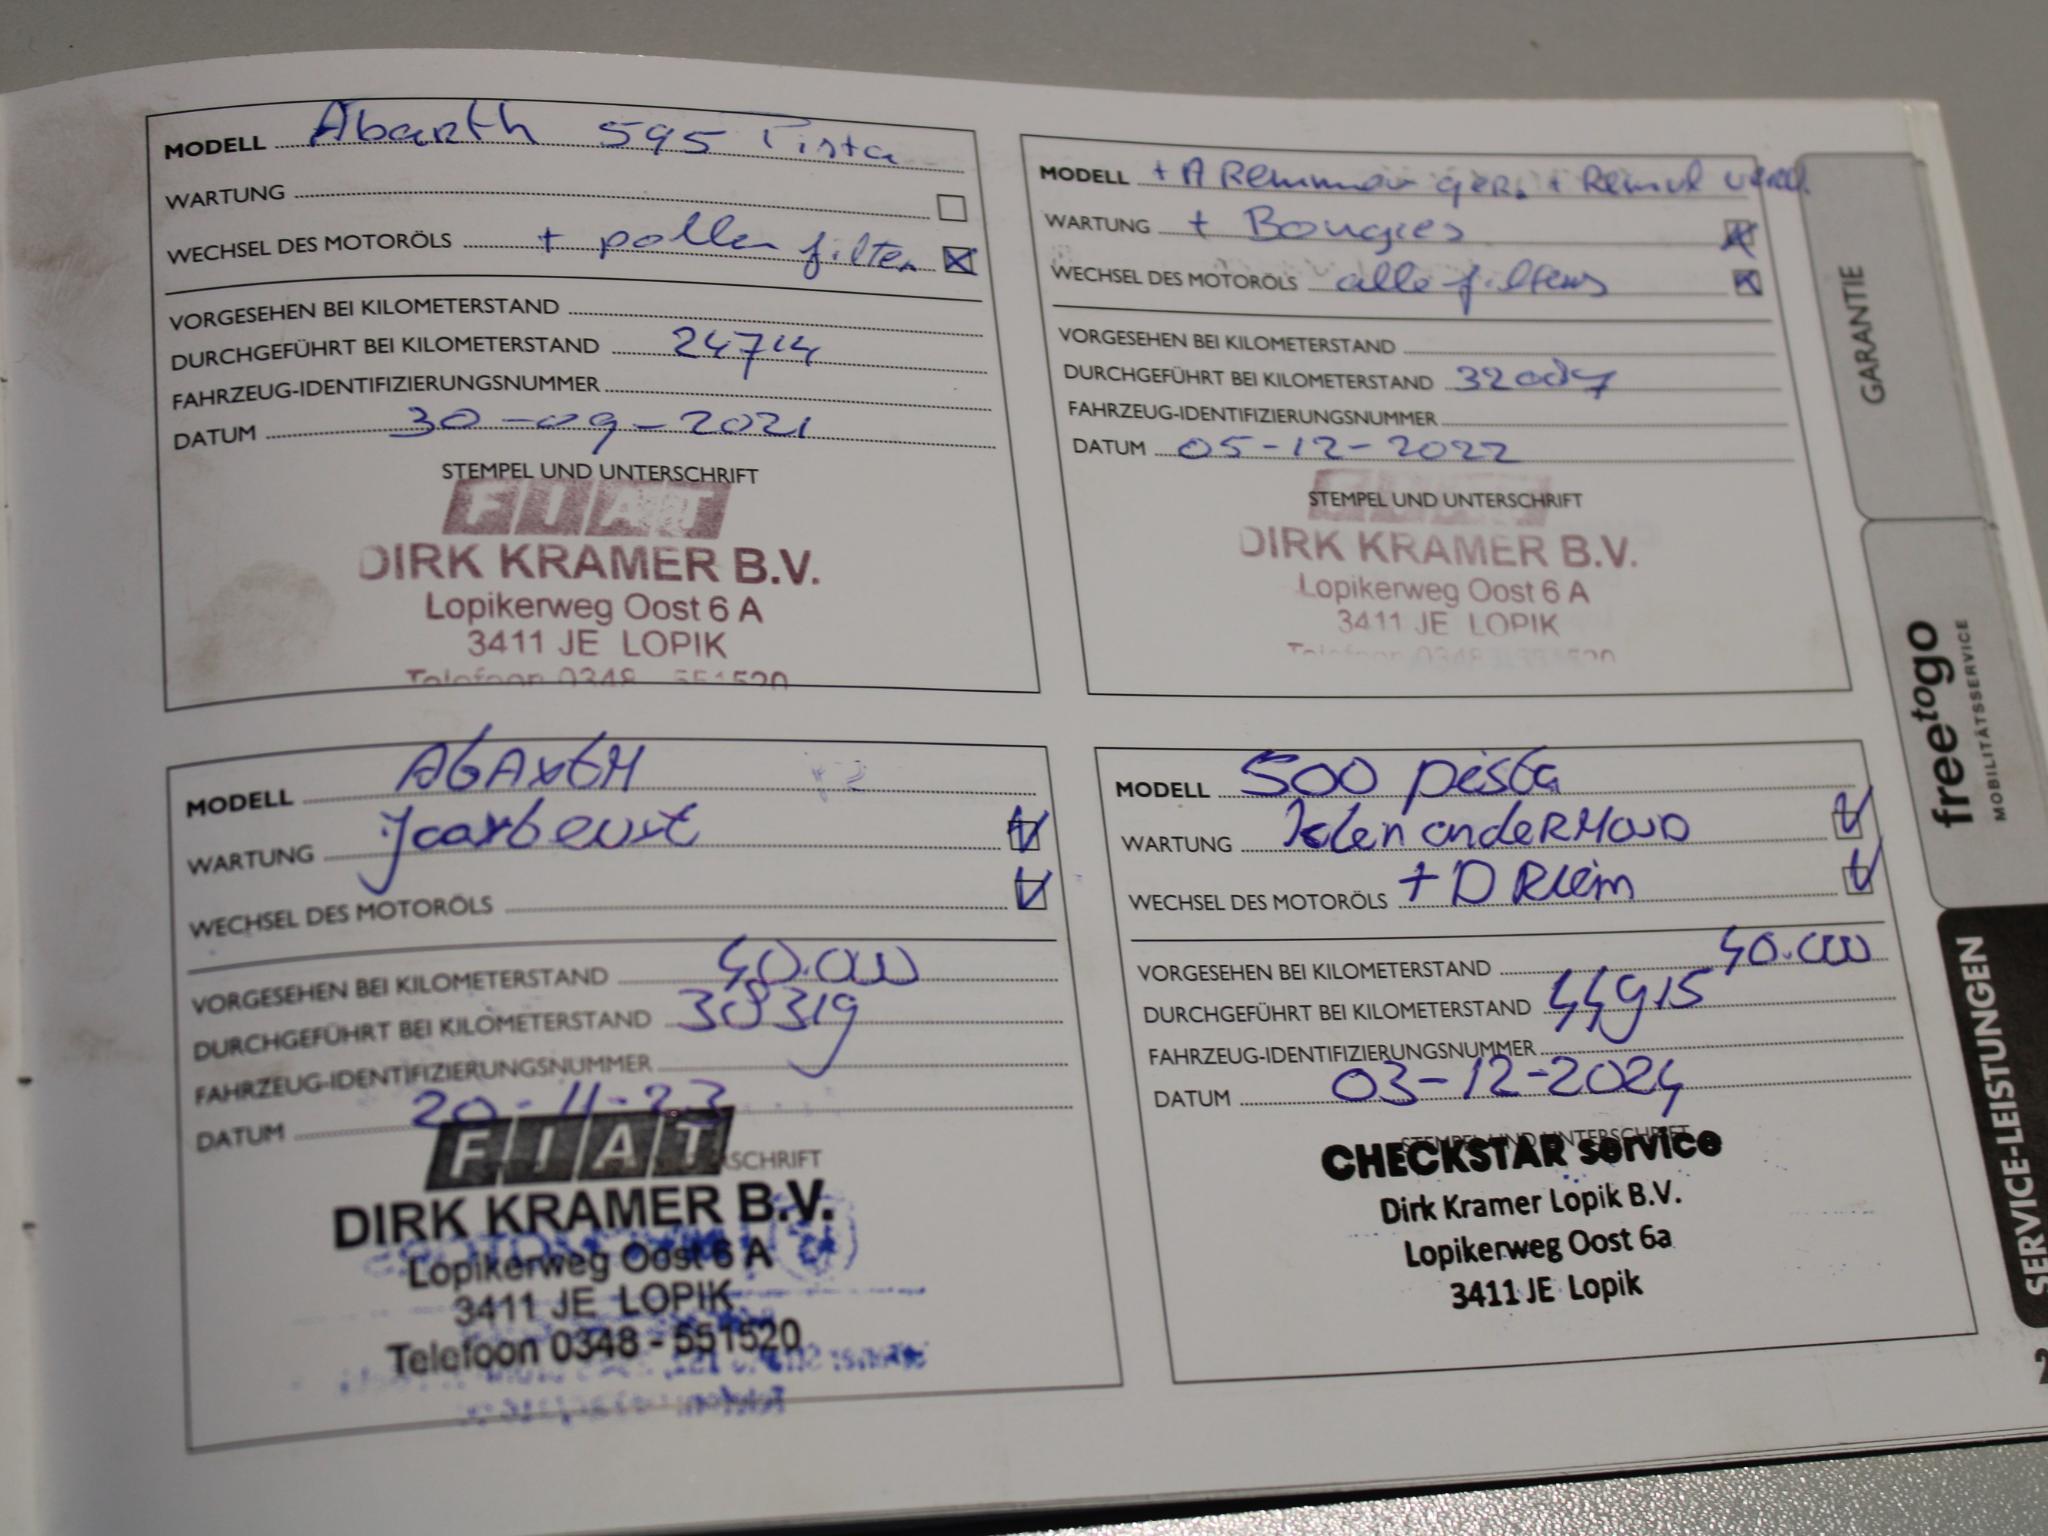 MODELL Abarth 595 Pista
WARTUNG
WECHSEL DES MOTORÖLS + pollen filter
VORGESEHEN BEI KILOMETERSTAND
DURCHGEFÜHRT BEI KILOMETERSTAND 24714
FAHRZEUG-IDENTIFIZIERUNGSNUMMER
DATUM 30-09-2021
STEMPEL UND UNTERSCHRIFT
FIAT
DIRK KRAMER B.V.
Lopikerweg Oost 6 A
3411 JE LOPIK
Telefoon 0348 - 551520
MODELL + A Remmen ger. + Remvl
WARTUNG + Bougies
WECHSEL DES MOTORÖLS alle filters
VORGESEHEN BEI KILOMETERSTAND
DURCHGEFÜHRT BEI KILOMETERSTAND
FAHRZEUG-IDENTIFIZIERUNGSNUMMER
DATUM 05-12-2022
STEMPEL UND UNTERSCHRIFT
DIRK KRAMER B.V.
Lopikerweg Oost 6 A
3411 JE LOPIK
MODELL AbARth
WARTUNG Jaarbeurt
WECHSEL DES MOTORÖLS
VORGESEHEN BEI KILOMETERSTAND 40.000
DURCHGEFÜHRT BEI KILOMETERSTAND 38319
FAHRZEUG-IDENTIFIZIERUNGSNUMMER
DATUM 20-11-23
FIAT
DIRK KRAMER B.V.
Lopikerweg Oost 6 A
3411 JE LOPIK
Telefoon 0348 - 551520
MODELL 500 pista
WARTUNG klein onderHoud
WECHSEL DES MOTORÖLS + D Riem
VORGESEHEN BEI KILOMETERSTAND 40.000
DURCHGEFÜHRT BEI KILOMETERSTAND 44915
FAHRZEUG-IDENTIFIZIERUNGSNUMMER
DATUM 03-12-2024
STEMPEL UND UNTERSCHRIFT
CHECKSTAR service
Dirk Kramer Lopik B.V.
Lopikerweg Oost 6a
3411 JE Lopik
GARANTIE
freetogo
MOBILITÄTSSERVICE
SERVICE-LEISTUNGEN